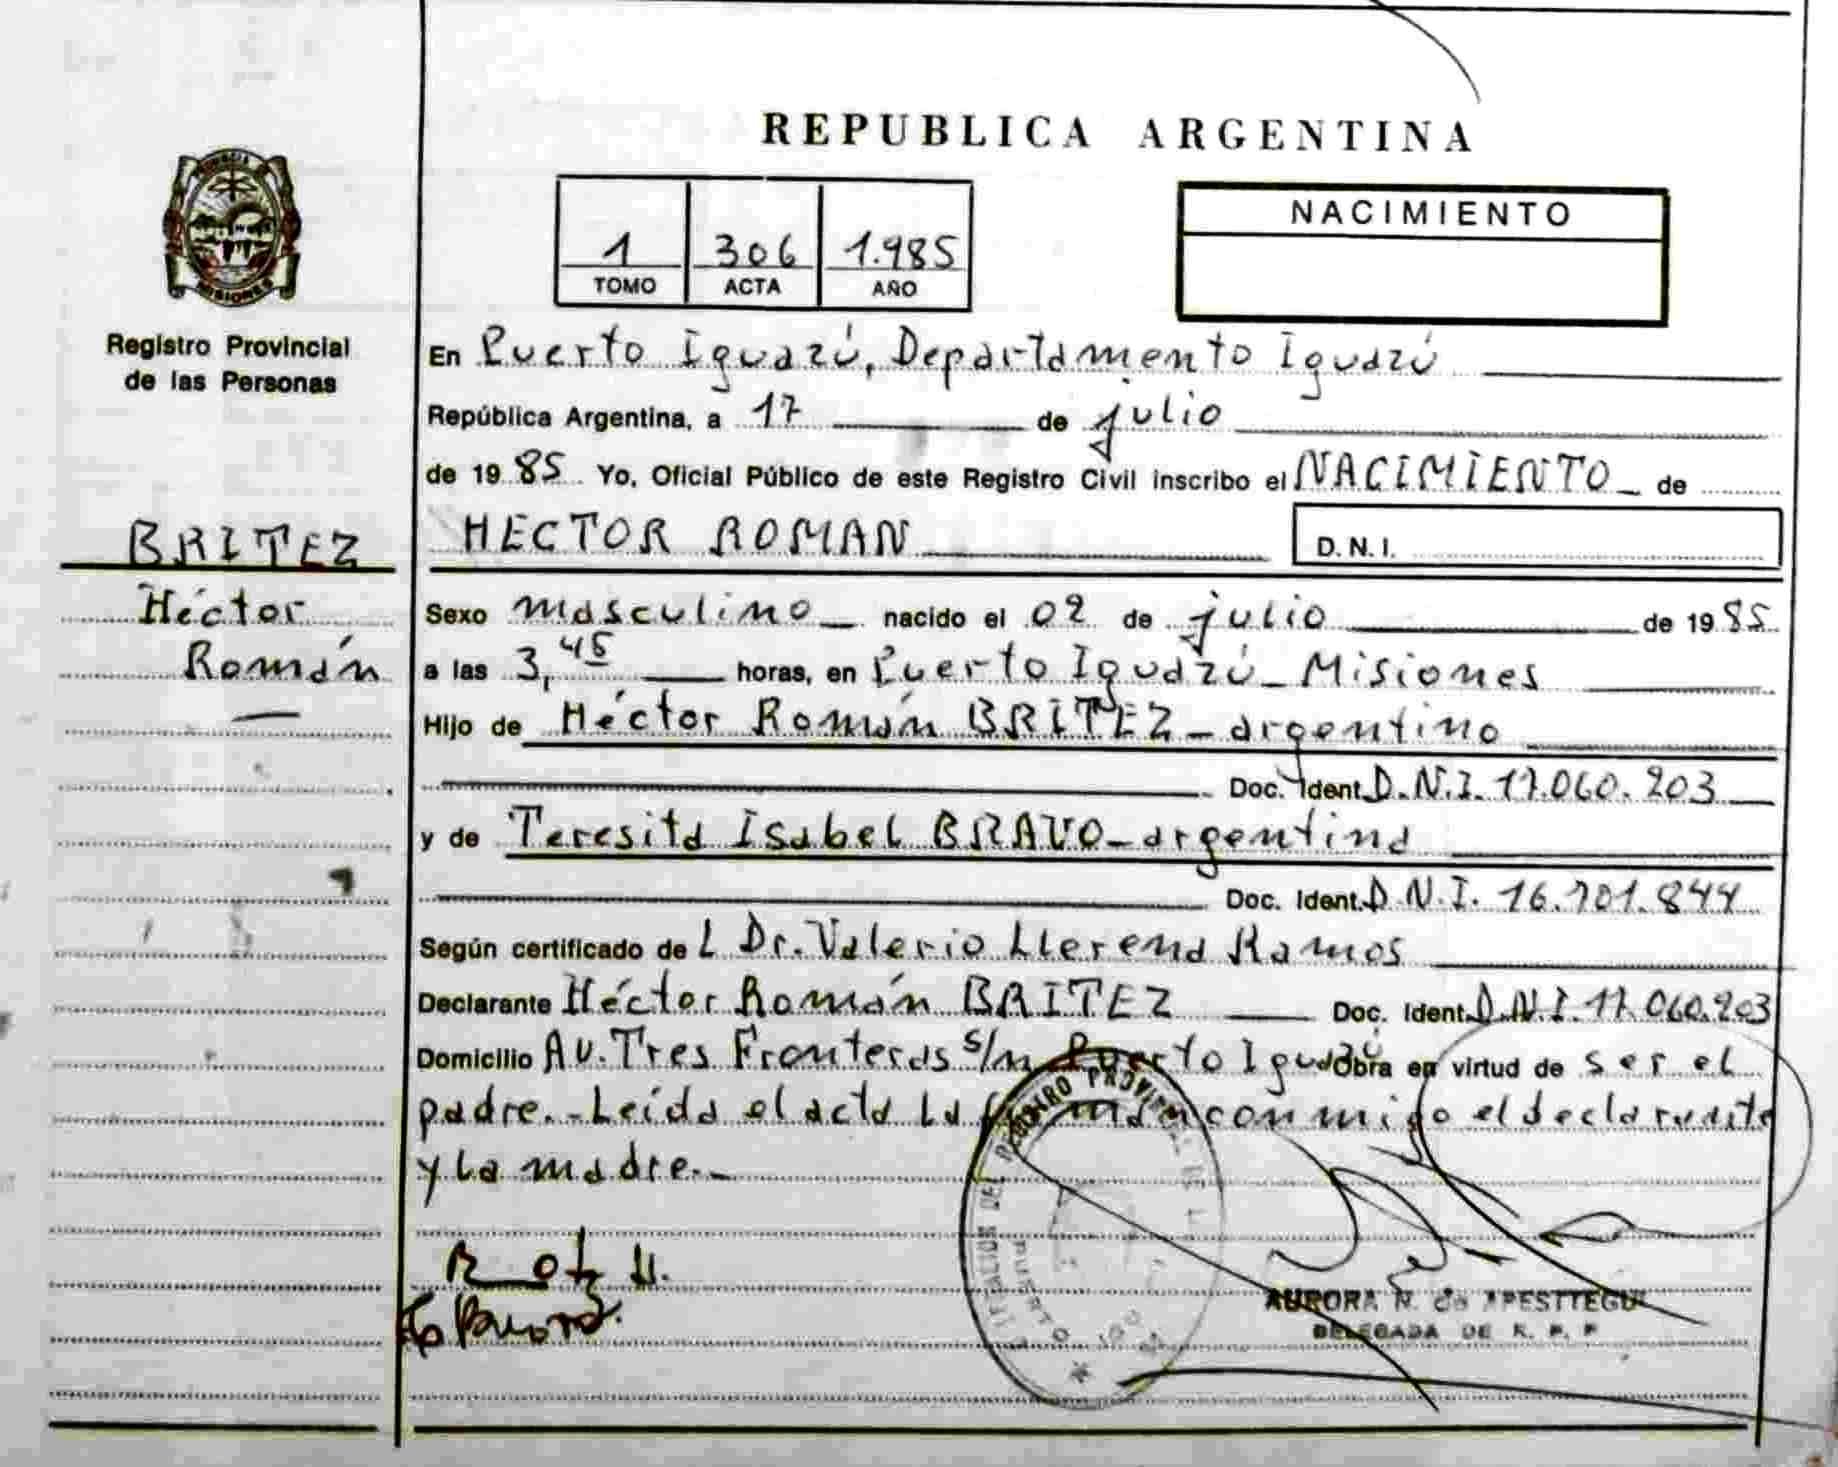 REPUBLICA ARGENTINA
MISIONES
Registro Provincial
de las Personas
1 306 1.985
TOMO ACTA AÑO
NACIMIENTO
En Puerto Iguazú, Departamento Iguazú
República Argentina, a 17 de julio
de 1985 Yo, Oficial Público de este Registro Civil inscribo el NACIMIENTO de
BRITEZ
Héctor
Román
HECTOR ROMAN
D.N.I.
Sexo masculino nacido el 02 de julio de 1985
a las 3,45 horas, en Puerto Iguazú - Misiones
Hijo de Héctor Román BRITEZ - argentino
Doc. Ident. D.N.I. 17.060.203
y de Teresita Isabel BRAVO - argentina
Doc. Ident. D.N.I. 16.701.844
Según certificado de L Dr. Valerio Llerena Ramos
Declarante Héctor Román BRITEZ Doc. Ident. D.N.I. 17.060.203
Domicilio Av. Tres Fronteras s/n Puerto Iguazú Obra en virtud de ser el
padre.- Leída el acta La firman conmigo el declarante
y La madre.-
AURORA N. de APESTTEGUI
DELEGADA DE R. P. P